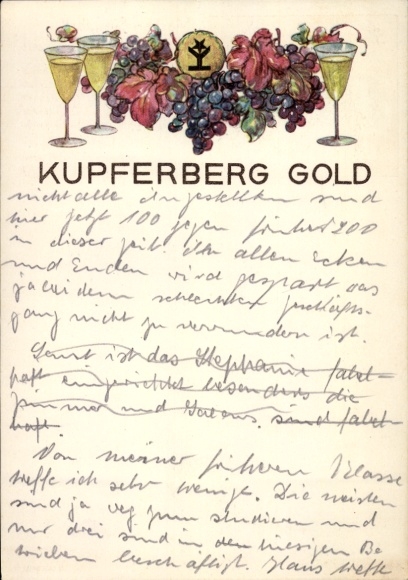 KUPFERBERG GOLD
nicht alle Angestellten sind
hier jetzt 100 gegen früher 200
in dieser Zeit. An allen Ecken
und Enden wird gespart was
ja bei dem schlechten Geschäfts-
gang nicht zu verwundern ist.
Sonst ist das Stephanie fabel-
haft eingerichtet besonders die
Zimmer und Salons sind fabel-
haft.
Von meiner früheren Klasse
treffe ich sehr wenige. Die meisten
sind ja weg zum studieren und
nur drei sind in den hiesigen Be
trieben beschäftigt. Hans